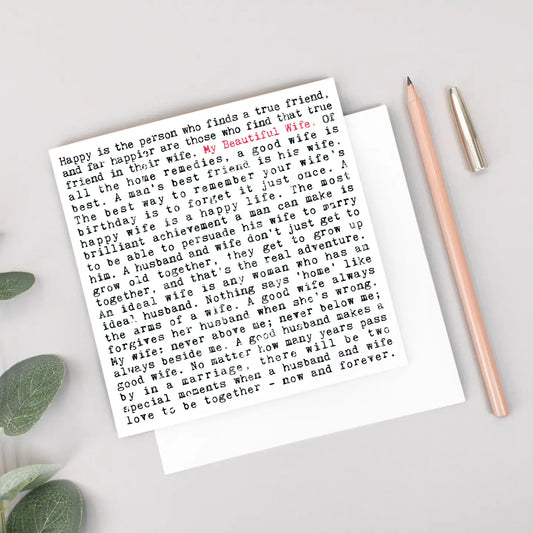 Happy is the person who finds a true friend,
and far happier are those who find that true
friend in their wife. My Beautiful Wife. Of
all the home remedies, a good wife is
best. A man's best friend is his wife.
The best way to remember your wife's
birthday is to forget it just once. A
happy wife is a happy life. The most
brilliant achievement a man can make is
to be able to persuade his wife to marry
him. A husband and wife don't just get to
grow old together, they get to grow up
together, and that's the real adventure.
An ideal wife is any woman who has an
ideal husband. Nothing says 'home' like
the arms of a wife. A good wife always
forgives her husband when she's wrong.
My wife: never above me; never below me;
always beside me. A good husband makes a
good wife. No matter how many years pass
by in a marriage, there will be two
special moments when a husband and wife
love to be together - now and forever.